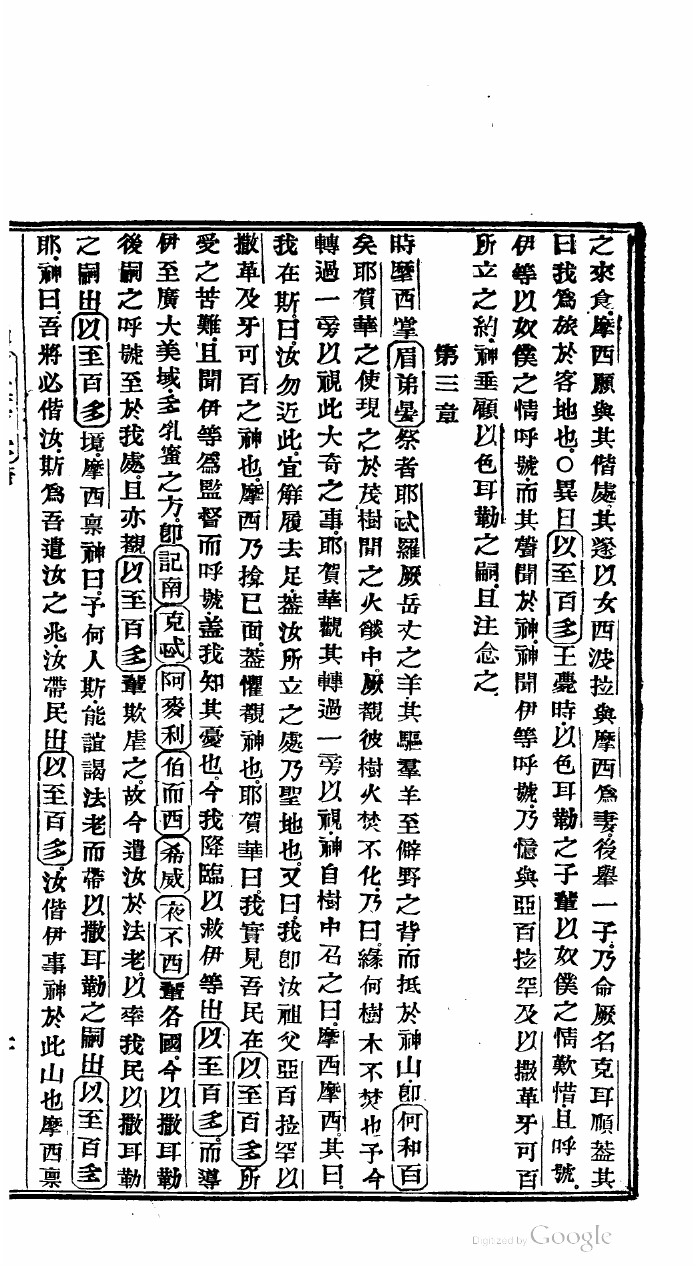 之來食摩西願與其偕處其遂以女西波拉與摩西爲妻後舉一子乃命厥名克耳順蓋其
曰我爲旅於客地也○異日以至百多王薨時以色耳勒之子輩以奴僕之情歎惜且呼號
伊等以奴僕之情呼號而其聲聞於神神聞伊等呼號乃憶與亞百拉罕及以撒革牙可百
所立之約神垂顧以色耳勒之嗣且注念之
第三章
時摩西掌眉弟晏祭者耶忒羅厥岳丈之羊其驅羣羊至僻野之背而抵於神山卽何和百
矣耶賀華之使現之於茂樹間之火燄中厥觀彼樹火焚不化乃曰緣何樹木不焚也予今
轉過一旁以視此大奇之事耶賀華觀其轉過一旁以視神自樹中召之曰摩西摩西其曰
我在斯曰汝勿近此宜解履去足蓋汝所立之處乃聖地也又曰我卽汝祖父亞百拉罕以
撒革及牙可百之神也摩西乃揜己面蓋懼觀神也耶賀華曰我實見吾民在以至百多所
愛之苦難且聞伊等爲監督而呼號蓋我知其憂也今我降臨以救伊等出以至百多而導
伊至廣大美域多乳蜜之方卽記南克忒阿麥利伯而西希威夜不西輩各國今以撒耳勒
後嗣之呼號至於我處且亦觀以至百多輩欺虐之故今遣汝於法老以率我民以撒耳勒
之嗣出以至百多境摩西禀神曰予何人斯能誼謁法老而帶以撒耳勒之嗣出以至百多
耶神曰吾將必偕汝斯爲吾遣汝之兆汝帶民出以至百多汝偕伊事神於此山也摩西禀
Digitized by Google